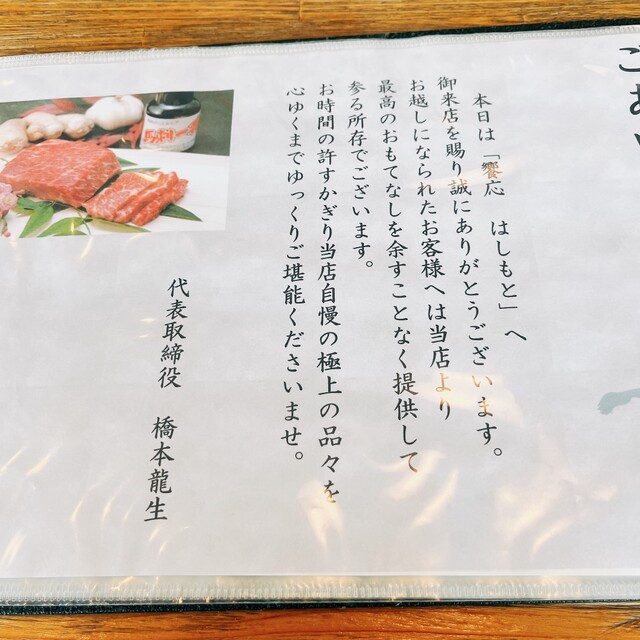 ごあい
本日は「饗応　はしもと」へ
御来店を賜り誠にありがとうございます。
お越しになられたお客様へは当店より
最高のおもてなしを余すことなく提供して
参る所存でございます。
お時間の許すかぎり当店自慢の極上の品々を
心ゆくまでゆっくりご堪能くださいませ。
代表取締役　橋本龍生